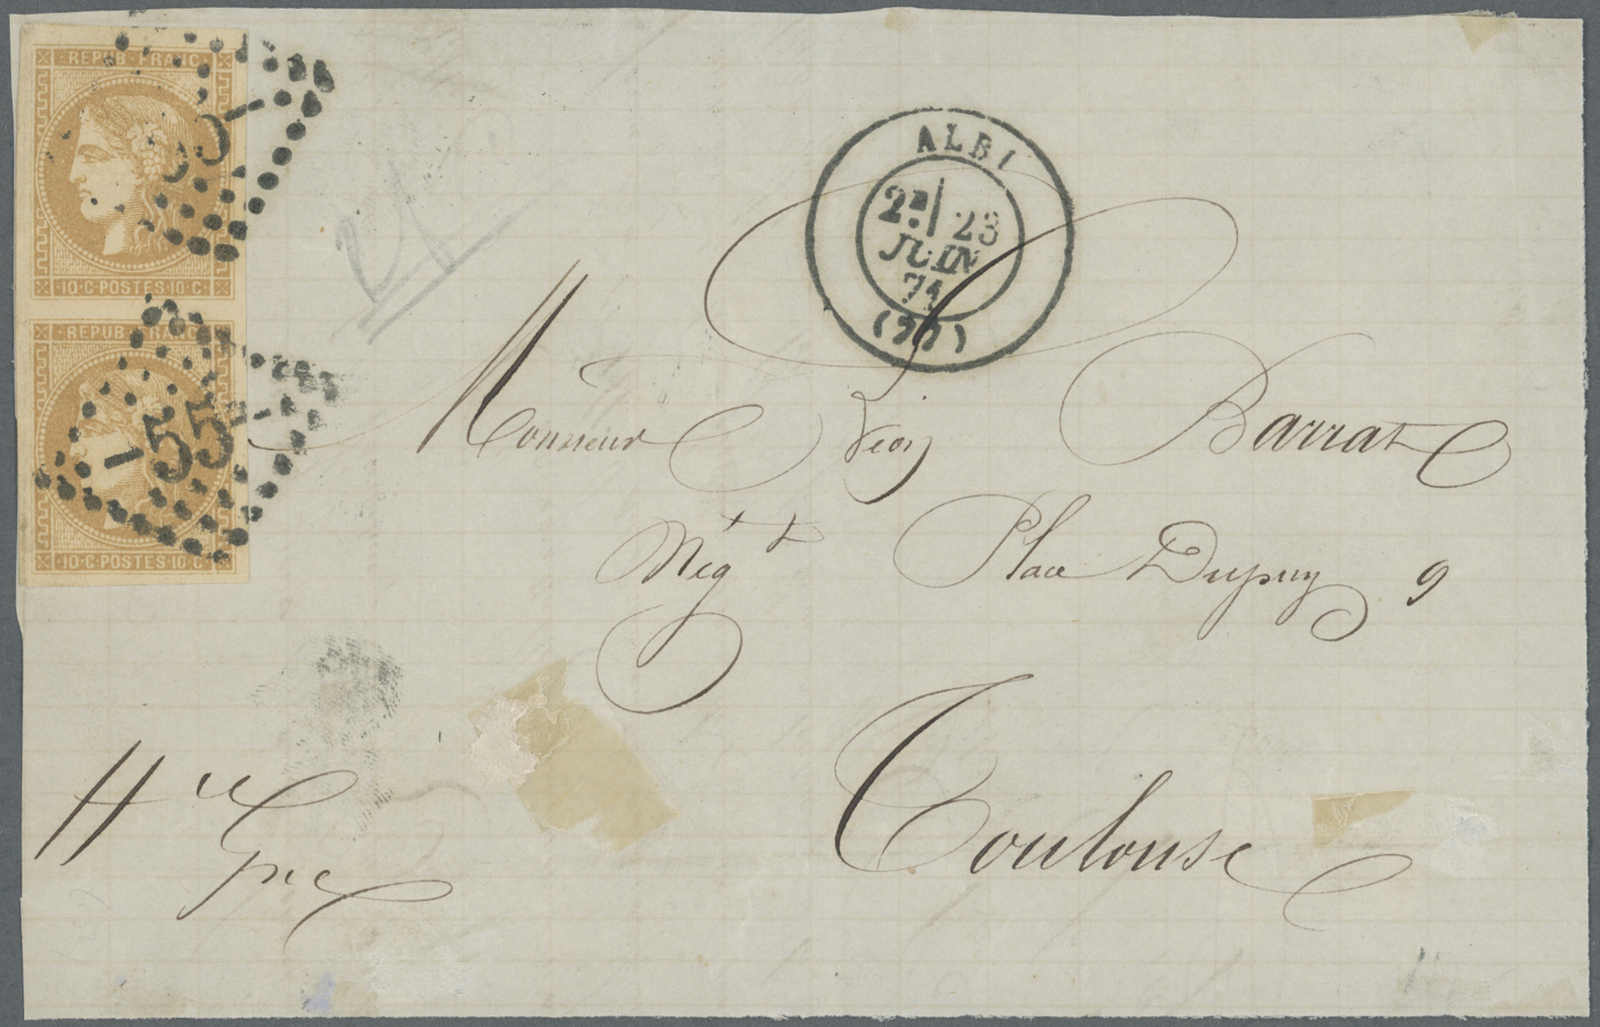 REPUB · FRANC
10 · C · POSTES · 10 · C
55
REPUB · FRANC
10 · C · POSTES · 10 · C
ALBI
2E 23
JUIN
71
Monsieur Barrat
Négt Place Dupuy 9
Toulouse
Hte
Gne